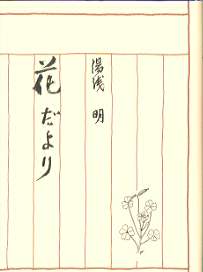 湯浅 明
花だより